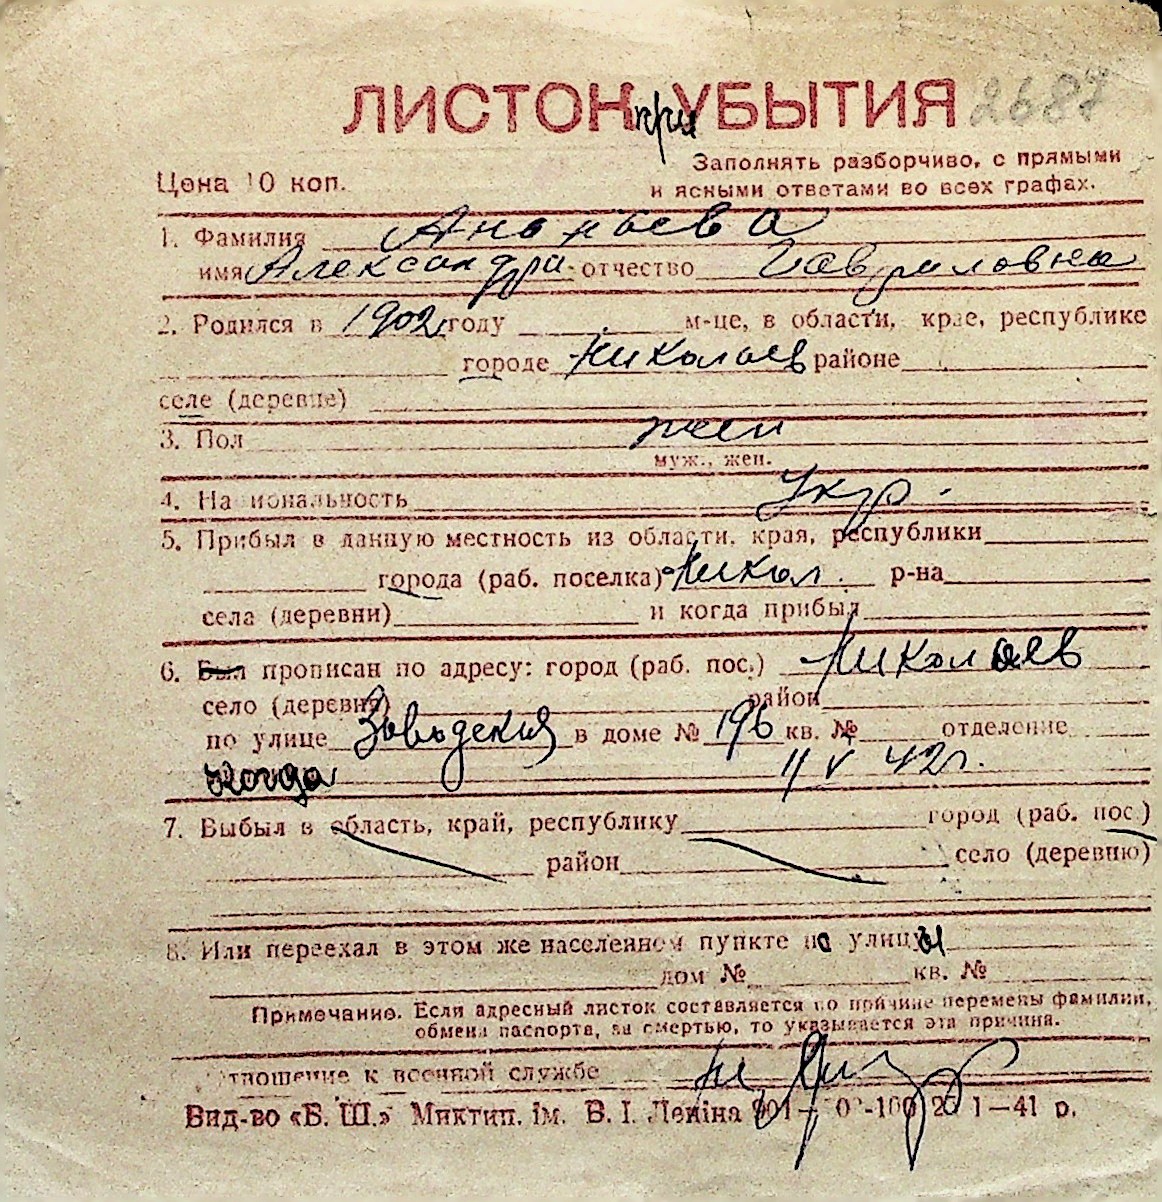 ЛИСТОК при УБЫТИЯ 2687
Заполнять разборчиво, с прямыми
Цена 10 коп. и ясными ответами во всех графах.
1. Фамилия Ананьева
имя Александра отчество Гавриловна
2. Родился в 1902 году м-це, в области, крае, республике
городе Николаев районе
селе (деревне)
3. Пол жен
муж., жен.
4. Национальность Укр.
5. Прибыл в данную местность из области, края, республики
города (раб. поселка) Никол. р-на
села (деревни) и когда прибыл
6. Был прописан по адресу: город (раб. пос.) Николаев
село (деревня) район
по улице Заводская в доме № 196 кв. № отделение
когда 11 V 42 г.
7. Выбыл в область, край, республику город (раб. пос.)
район село (деревню)
8. Или переехал в этом же населенном пункте на улицы
дом № кв. №
Примечание. Если адресный листок составляется по причине перемены фамилии,
обмена паспорта, за смертью, то указывается эта причина.
Отношение к военной службе
Вид-во «Б. Ш.» Миктип. ім. В. І. Леніна 1—41 р.